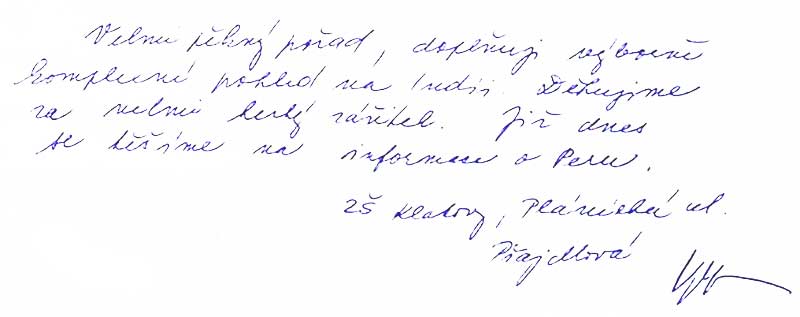 Velmi pěkný pořad, doplňují výborně
komplexní pohled na Indii. Děkujeme
za velmi hezký zážitek. Již dnes
se těšíme na informace o Peru.
ZŠ Klatovy, Plánická ul.